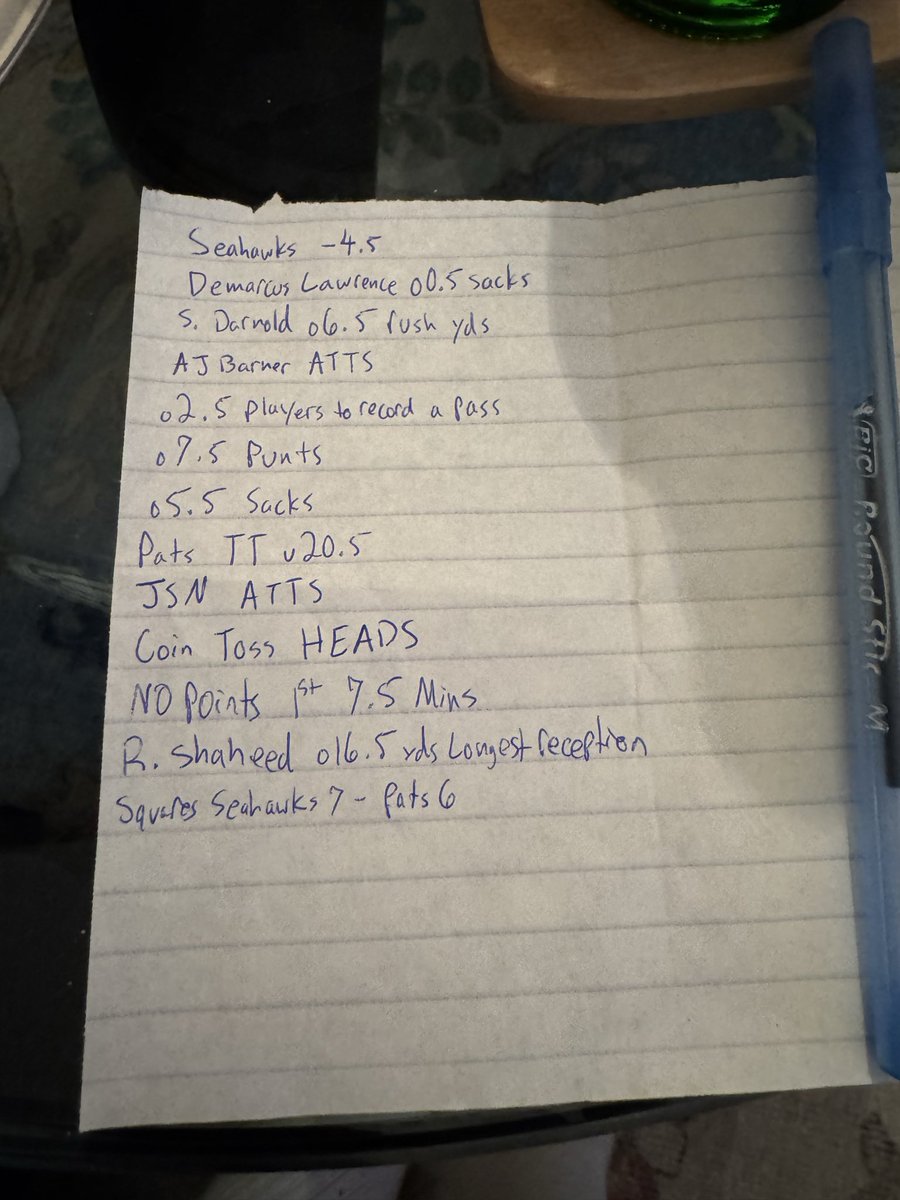 Seahawks -4.5
Demarcus Lawrence o0.5 sacks
S. Darnold o6.5 rush yds
AJ Barner ATTS
o2.5 players to record a pass
o7.5 Punts
o5.5 Sacks
Pats TT u20.5
JSN ATTS
Coin Toss HEADS
NO Points 1st 7.5 Mins
R. Shaheed o16.5 yds Longest reception
Squares Seahawks 7 - Pats 6
BIC Round Stic M